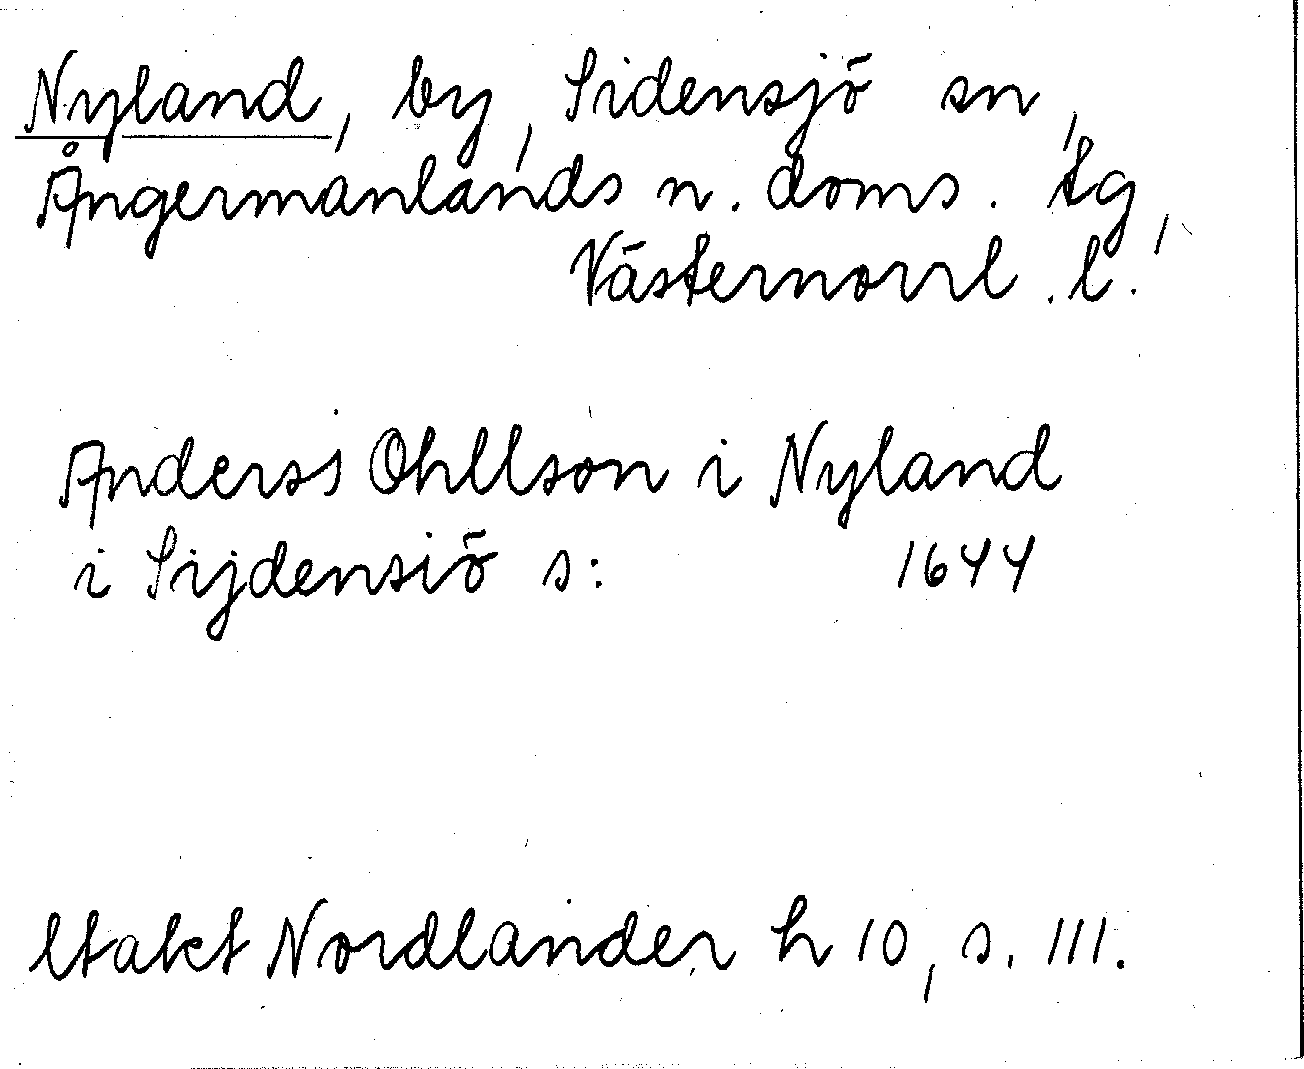 Nyland, by, Sidensjö sn,
Ångermanlands n. doms. tg,
Västernorrl. l.
Anderss Ohllson i Nyland
i Sijdensiö s: 1644
Nordlander h 10, s. 111.